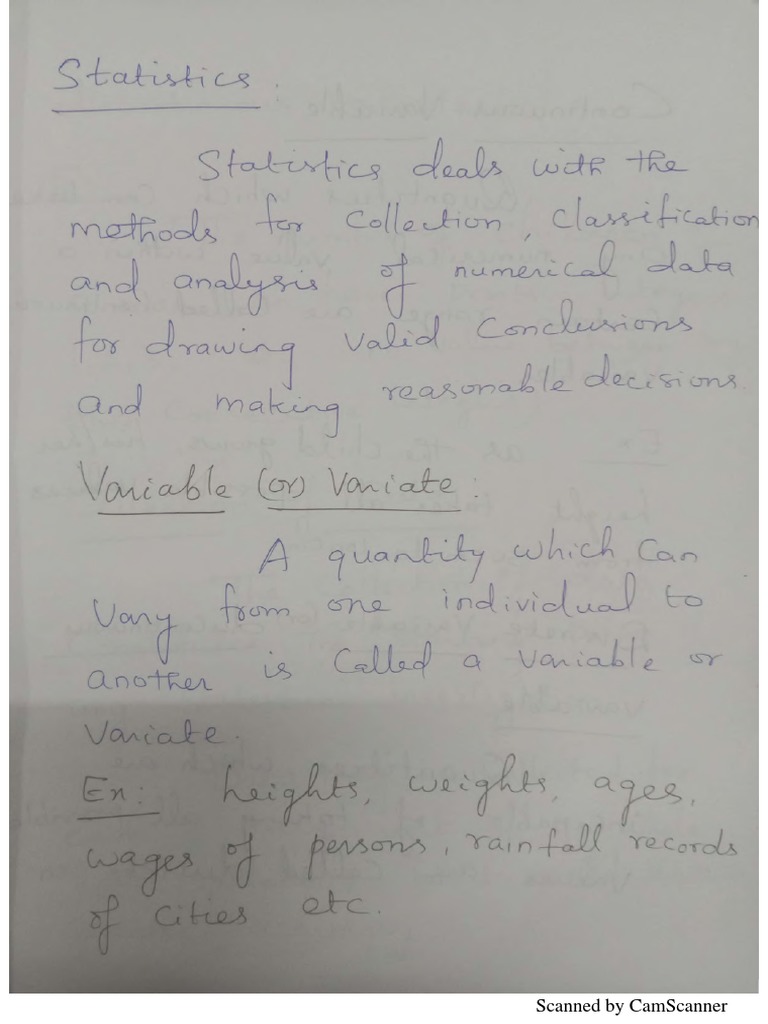 Statistics
Statistics deals with the
methods for Collection, Classification
and analysis of numerical data
for drawing Valid Conclusions
and making reasonable decisions.
Variable (or) Variate:
A quantity which Can
Vary from one individual to
another is Called a Variable or
Variate.
Ex: heights, weights, ages,
wages of persons, rainfall records
of Cities etc.
Scanned by CamScanner